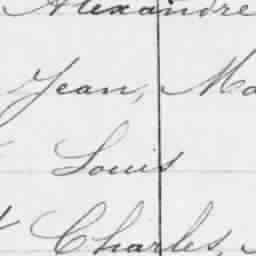 Alexandre
Jean, Ma
Louis
Charles,